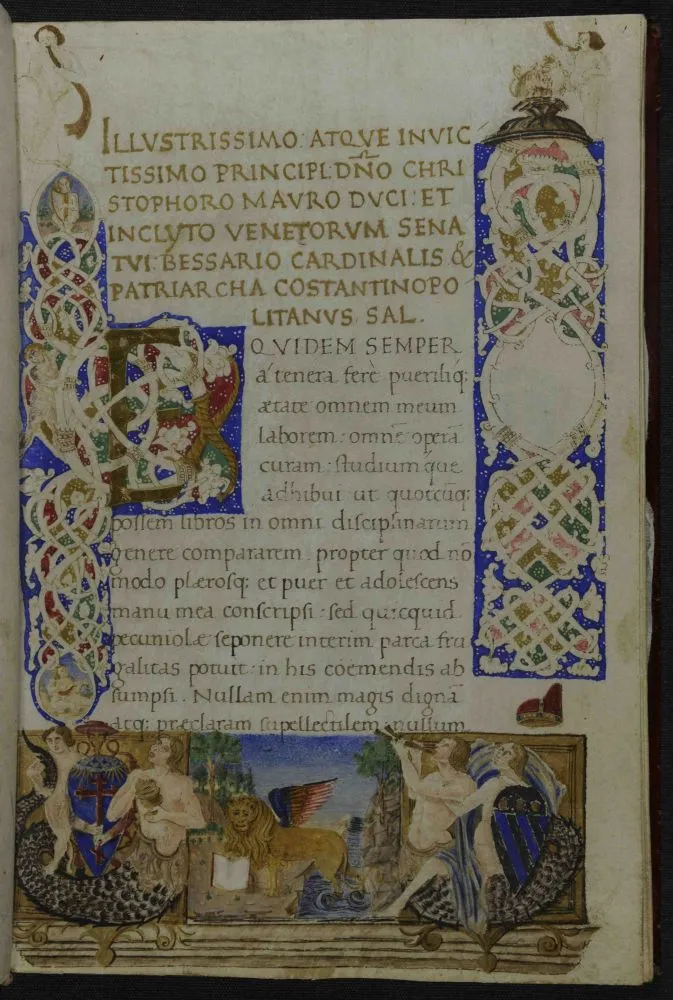 ILLVSTRISSIMO· ATQVE INVIC
TISSIMO PRINCIPI· DÑO CHRI
STOPHORO MAVRO DVCI: ET
INCLYTO VENETORVM SENA
TVI: BESSARIO CARDINALIS &
PATRIARCHA COSTANTINOPO
LITANVS SAL.
EQVIDEM SEMPER
a' tenera ferè pueriliq;
ætate omnem meum
laborem: omnē operā
curam: studium que
adhibui ut quotcūq;
possem libros in omni disciplinarum
genere compararem. propter quod nō
modo plærosq; et puer et adolescens
manu mea conscripsi: sed quicquid
pecuniolæ seponere interim parca fru
galitas potuit: in his coemendis ab
sumpsi. Nullam enim magis dignā
atq; præclaram supellectilem: nullum